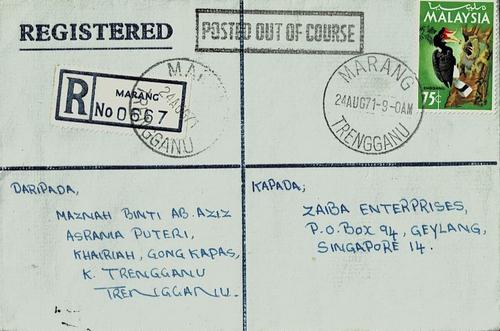 REGISTERED
POSTED OUT OF COURSE
مليسيا
MALAYSIA
ENGGANG
75¢
R
MARANG
No 0667
24AUG71
TRENGGANU
MARANG
24AUG71-9-0AM
TRENGGANU
DARIPADA,
MAZNAH BINTI AB. AZIZ
ASRAMA PUTERI,
KHAIRIAH, GONG KAPAS,
K. TRENGGANU
TRENGGANU.
KAPADA;
ZAIBA ENTERPRISES,
P.O.BOX 94, GEYLANG,
SINGAPORE 14.